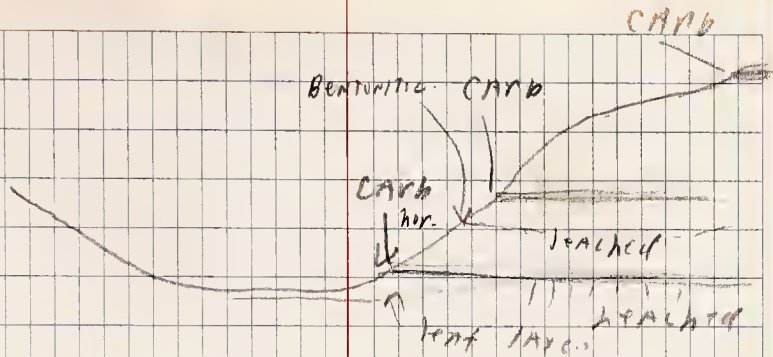 CArb
BENTONITIC CArb
CArb
hor.
leached
leached
leaf